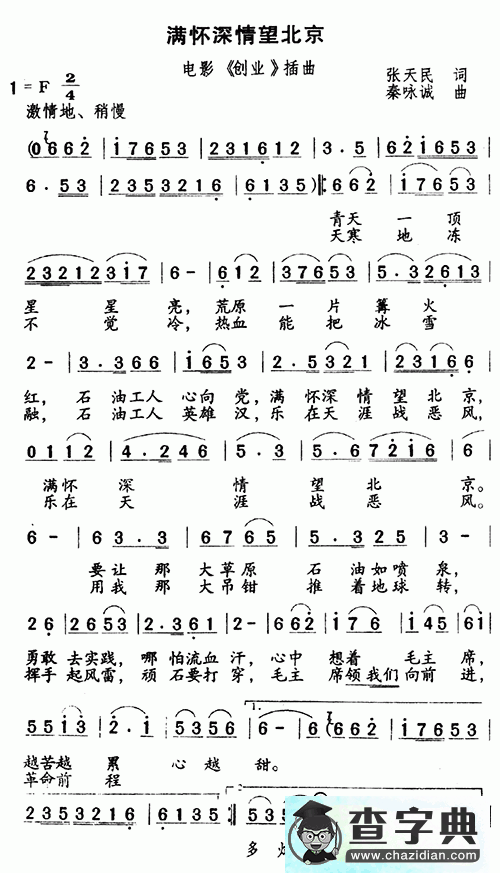 满怀深情望北京
电影《创业》插曲
张天民 词
1=F 2/4
秦咏诚 曲
激情地、稍慢
(0662 | i7653 | 2353212 | 3·5 | 621653 |
6·53 | 2353216 | 6135) ‖: 662 | i7653 |
青天 一 顶
天寒 地 冻
2321231 7 | 6- | 612 | 37653 | 5·32653 |
星 星 亮，荒原 一 片 篝 火
不 觉 冷，热血 能 把 冰 雪
2- | 3·366 | i653 | 2·5321 | 23166 |
红，石 油工人 心向 党，满 怀深 情 望 北 京，
融，石 油工人 英雄 汉，乐 在天 涯 战 恶 风，
0112 | 4·246 | 5·35 | 5·67216 | 6
满怀 深 情 望 北 京。
乐在 天 涯 战 恶 风。
6- | 63·3 | 6765 | 5·325 | 3- |
要让 那 大草 原 石 油如 喷 泉，
用我 那 大吊 钳 推 着地 球 转，
26 | 2·53 | 2·361 | 212 | 176 | i45 | 6i |
勇敢 去实践，哪 怕流血 汗，心中 想着 毛主 席，
挥手 起风雷，顽 石要打 穿，毛主 席领我们 向前 进，
1.
55i3 | 2·i | 5356 | 6- | 662 | i7653 |
越苦越 累 心越 甜。
革命前 程
2.
2353216 | 6135 :‖ 5356
多
查字典
www.chazidian.com